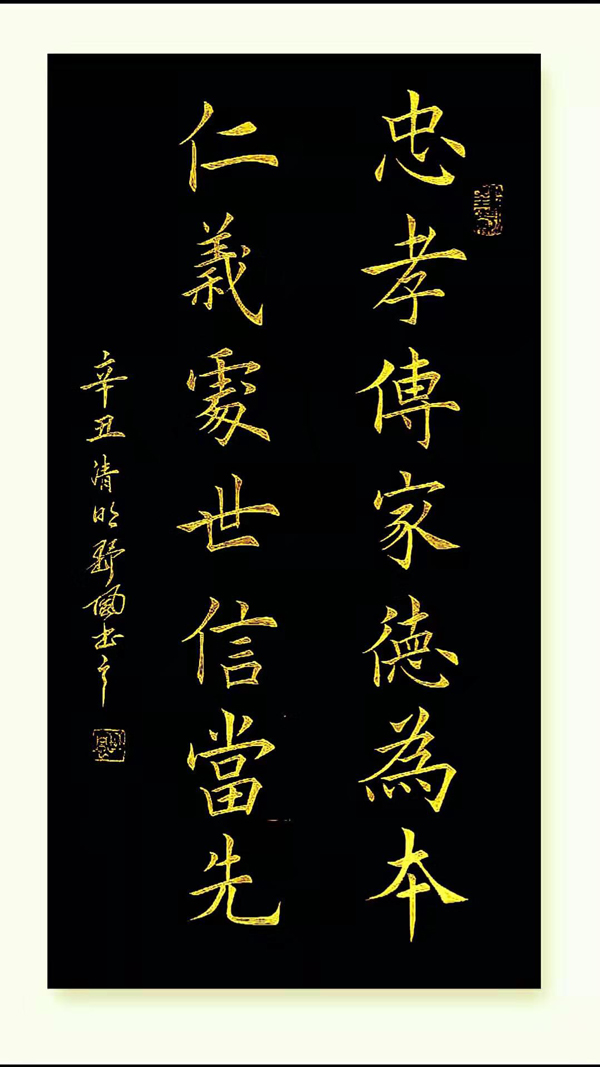 忠孝傳家德為本
仁義處世信當先
辛丑清明野風書之